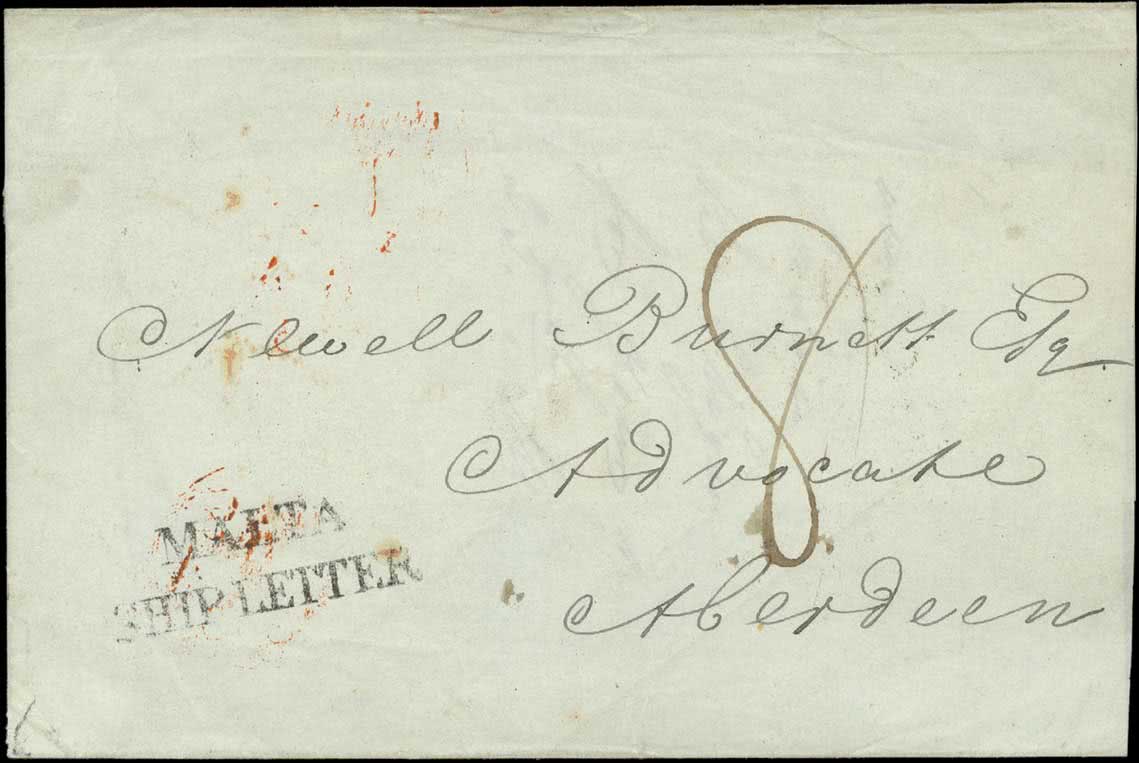 Newell Burnett Esq
Advocate
Aberdeen
8
MALTA
SHIP LETTER